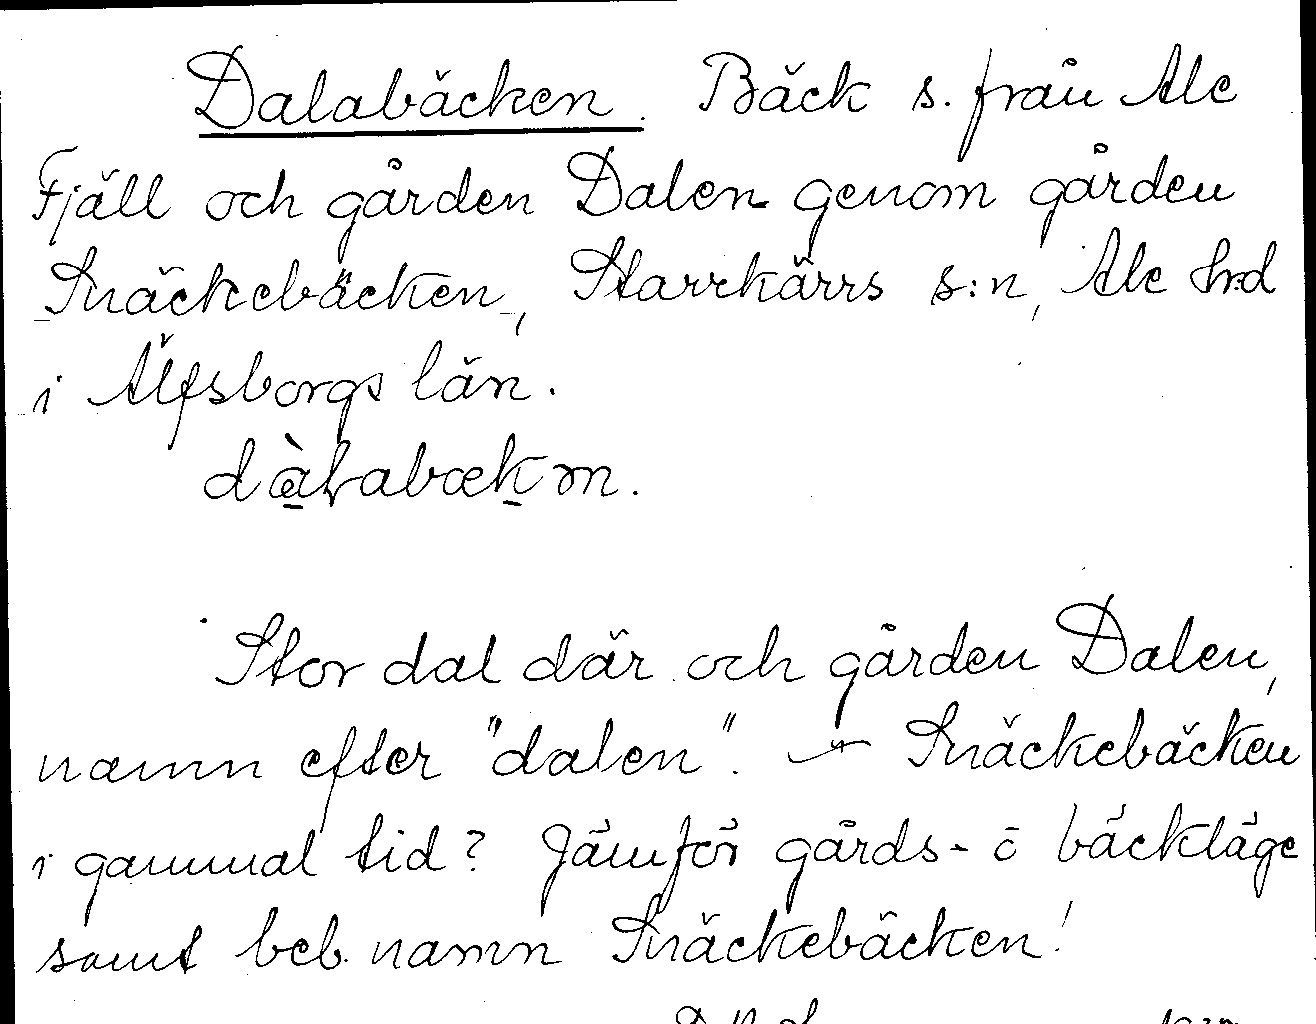 Dalabäcken. Bäck s. från Ale
Fjäll och gården Dalen genom gården
Snäckebäcken, Starrkärrs s:n, Ale hrd
i Älfsborgs län.
Stor dal där och gården Dalen,
namn efter "dalen". — Snäckebäcken
i gammal tid? Jämför gårds- o bäckläge
samt beb. namn Snäckebäcken!